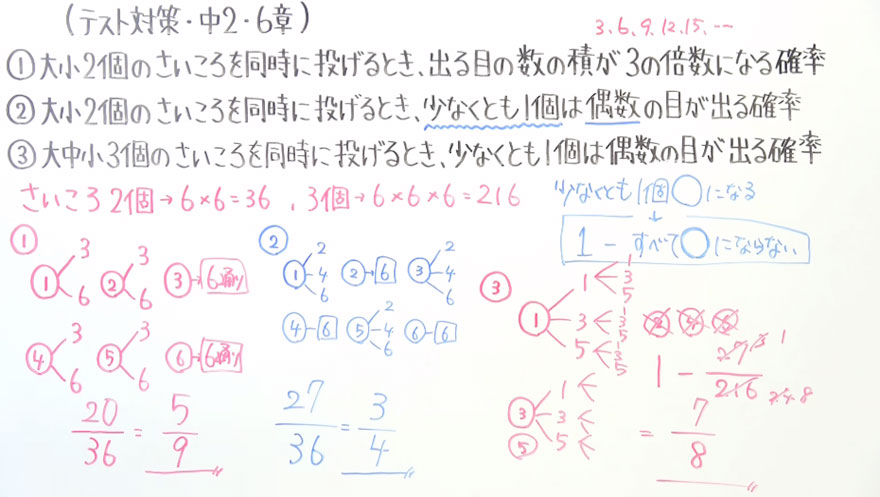 (テスト対策・中2・6章)
3、6、9、12、15、…
①大小2個のさいころを同時に投げるとき、出る目の数の積が3の倍数になる確率
②大小2個のさいころを同時に投げるとき、少なくとも1個は偶数の目が出る確率
③大中小3個のさいころを同時に投げるとき、少なくとも1個は偶数の目が出る確率
さいころ2個→6×6=36、3個→6×6×6=216
少なくとも1個○になる
↓
1 - すべて○にならない
①
① 3 6
② 3 6
③→6通り
④ 3 6
⑤ 3 6
⑥→6通り
20/36 = 5/9
②
① 2 4 6
②→6
③ 2 4 6
④-6
⑤ 2 4 6
⑥-6
27/36 = 3/4
③
①
1 1 3 5
3 1 3 5
5 1 3 5
② ④ ⑥
③
⑤
1 <
3 <
5 <
1 - 27/216 3 1 24 8
= 7/8